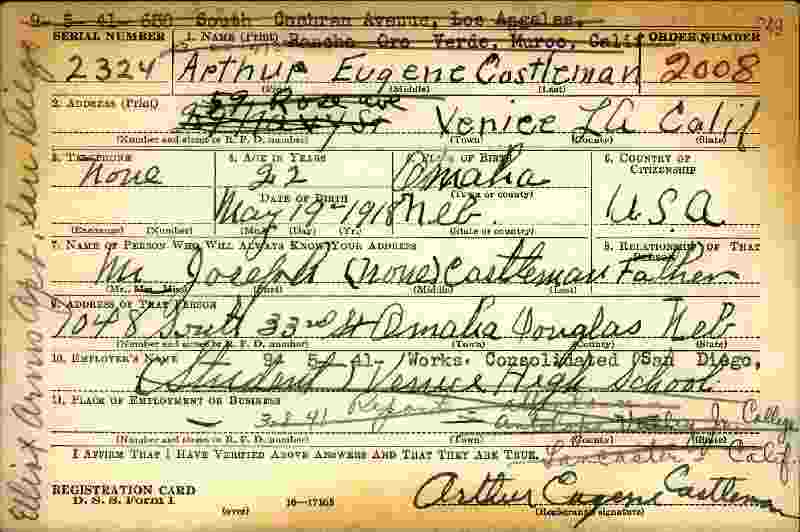 9- 5- 41- 650 South Cochran Avenue, Los Angeles,
SERIAL NUMBER 1. NAME (Print) Rancho Oro Verde, Muroc, Calif ORDER NUMBER
2324 Arthur Eugene Castleman 2008
(First) (Middle) (Last)
59 Rose ave
2. ADDRESS (Print)
Navy St Venice LA Calif
(Number and street or R. F. D. number) (Town) (County) (State)
3. TELEPHONE 4. AGE IN YEARS 5. PLACE OF BIRTH 6. COUNTRY OF CITIZENSHIP
None 22 Omaha
DATE OF BIRTH (Town or county)
May 19-1918 Neb. U.S.A.
(Exchange) (Number) (Mo.) (Day) (Yr.) (State or country)
7. NAME OF PERSON WHO WILL ALWAYS KNOW YOUR ADDRESS 8. RELATIONSHIP OF THAT PERSON
Mr. Joseph (None) Castleman Father
(Mr., Mrs., Miss) (First) (Middle) (Last)
9. ADDRESS OF THAT PERSON
7048 South 33rd St Omaha Douglas Neb
(Number and street or R. F. D. number) (Town) (County) (State)
10. EMPLOYER'S NAME 9- 5- 41- Works. Consolidated San Diego,
(Student) Venice High School
11. PLACE OF EMPLOYMENT OR BUSINESS
Antelope Valley Jr. College
(Number and street or R. F. D. number) (Town) (County) (State)
I AFFIRM THAT I HAVE VERIFIED ABOVE ANSWERS AND THAT THEY ARE TRUE. Lancaster Calif.
REGISTRATION CARD
D. S. S. Form 1 (over) 16-17105 Arthur Eugene Castleman
(Registrant's signature)
Elliott Arms Apt San Diego